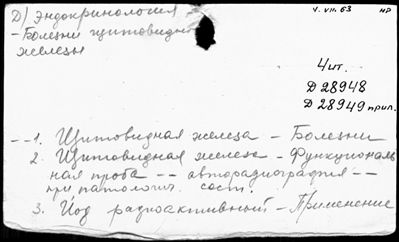 Д) Эндокринология 4. VII. 63 НР
- Болезни щитовидной
железы
4 чит.
Д 28948
Д 28949 прил.
-- 1. Щитовидная железа - Болезни
2. Щитовидная железа - Функциональ
ная проба -- авторадиография --
при патологич. сост.
3. Йод радиоактивный - Применение